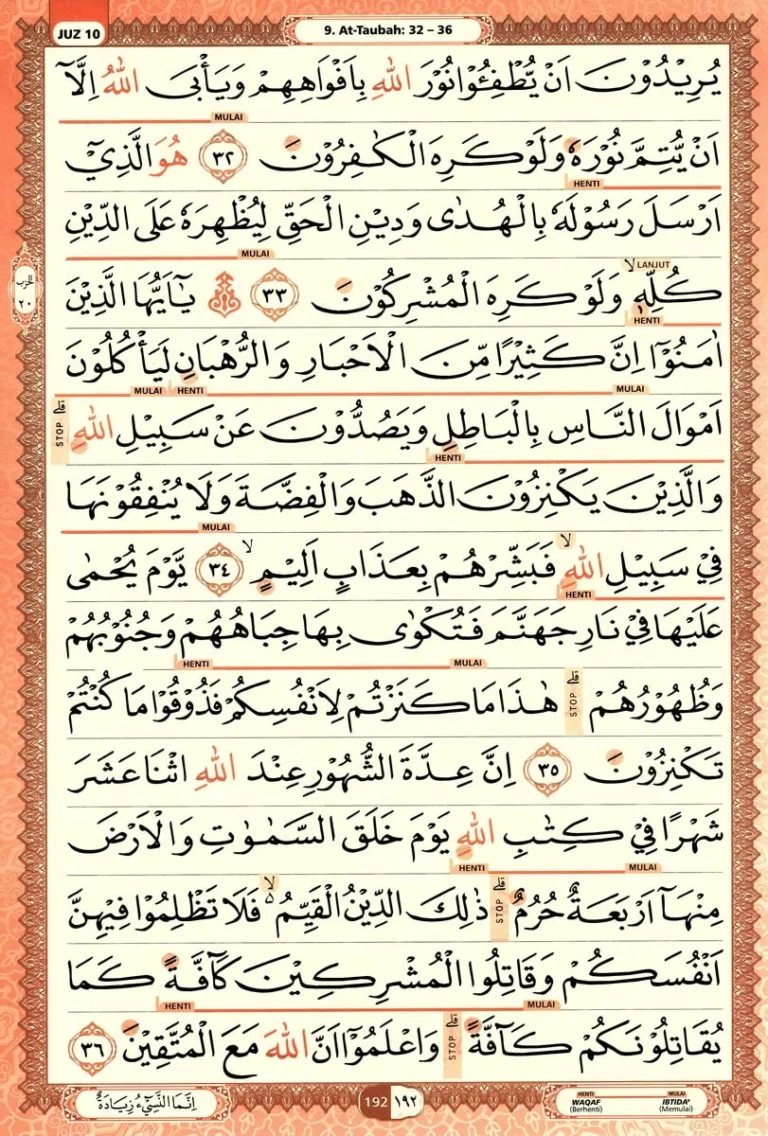 JUZ 10
9. At-Taubah: 32 – 36
يُرِيْدُوْنَ اَنْ يُّطْفِـُٔوْا نُوْرَ اللّٰهِ بِاَفْوَاهِهِمْ وَيَأْبَى اللّٰهُ اِلَّآ
MULAI
اَنْ يُّتِمَّ نُوْرَهٗ وَلَوْ كَرِهَ الْكٰفِرُوْنَ ٣٢ هُوَ الَّذِيْٓ
HENTI
اَرْسَلَ رَسُوْلَهٗ بِالْهُدٰى وَدِيْنِ الْحَقِّ لِيُظْهِرَهٗ عَلَى الدِّيْنِ
MULAI
لا LANJUT
كُلِّهٖ وَلَوْ كَرِهَ الْمُشْرِكُوْنَ ٣٣ يٰٓاَيُّهَا الَّذِيْنَ
HENTI
الحزب
٢٠
اٰمَنُوْٓا اِنَّ كَثِيْرًا مِّنَ الْاَحْبَارِ وَالرُّهْبَانِ لَيَأْكُلُوْنَ
MULAI HENTI MULAI
اَمْوَالَ النَّاسِ بِالْبَاطِلِ وَيَصُدُّوْنَ عَنْ سَبِيْلِ اللّٰهِ ۗ STOP
HENTI
وَالَّذِيْنَ يَكْنِزُوْنَ الذَّهَبَ وَالْفِضَّةَ وَلَا يُنْفِقُوْنَهَا
MULAI
فِيْ سَبِيْلِ اللّٰهِ ۙ فَبَشِّرْهُمْ بِعَذَابٍ اَلِيْمٍ ۙ ٣٤ يَّوْمَ يُحْمٰى
HENTI
عَلَيْهَا فِيْ نَارِ جَهَنَّمَ فَتُكْوٰى بِهَا جِبَاهُهُمْ وَجُنُوْبُهُمْ
HENTI MULAI
وَظُهُوْرُهُمْ ۗ STOP هٰذَا مَا كَنَزْتُمْ لِاَنْفُسِكُمْ فَذُوْقُوْا مَا كُنْتُمْ
تَكْنِزُوْنَ ٣٥ اِنَّ عِدَّةَ الشُّهُوْرِ عِنْدَ اللّٰهِ اثْنَا عَشَرَ
شَهْرًا فِيْ كِتٰبِ اللّٰهِ يَوْمَ خَلَقَ السَّمٰوٰتِ وَالْاَرْضَ
HENTI MULAI
مِنْهَآ اَرْبَعَةٌ حُرُمٌ ۗ STOP ذٰلِكَ الدِّيْنُ الْقَيِّمُ ۙ فَلَا تَظْلِمُوْا فِيْهِنَّ
اَنْفُسَكُمْ وَقَاتِلُوا الْمُشْرِكِيْنَ كَآفَّةً كَمَا
HENTI MULAI
يُقَاتِلُوْنَكُمْ كَآفَّةً ۗ STOP وَاعْلَمُوْٓا اَنَّ اللّٰهَ مَعَ الْمُتَّقِيْنَ ٣٦
اِنَّمَا النَّسِيْۤءُ زِيَادَةٌ
192 ١٩٢
HENTI MULAI
WAQAF IBTIDA'
(Berhenti) (Memulai)